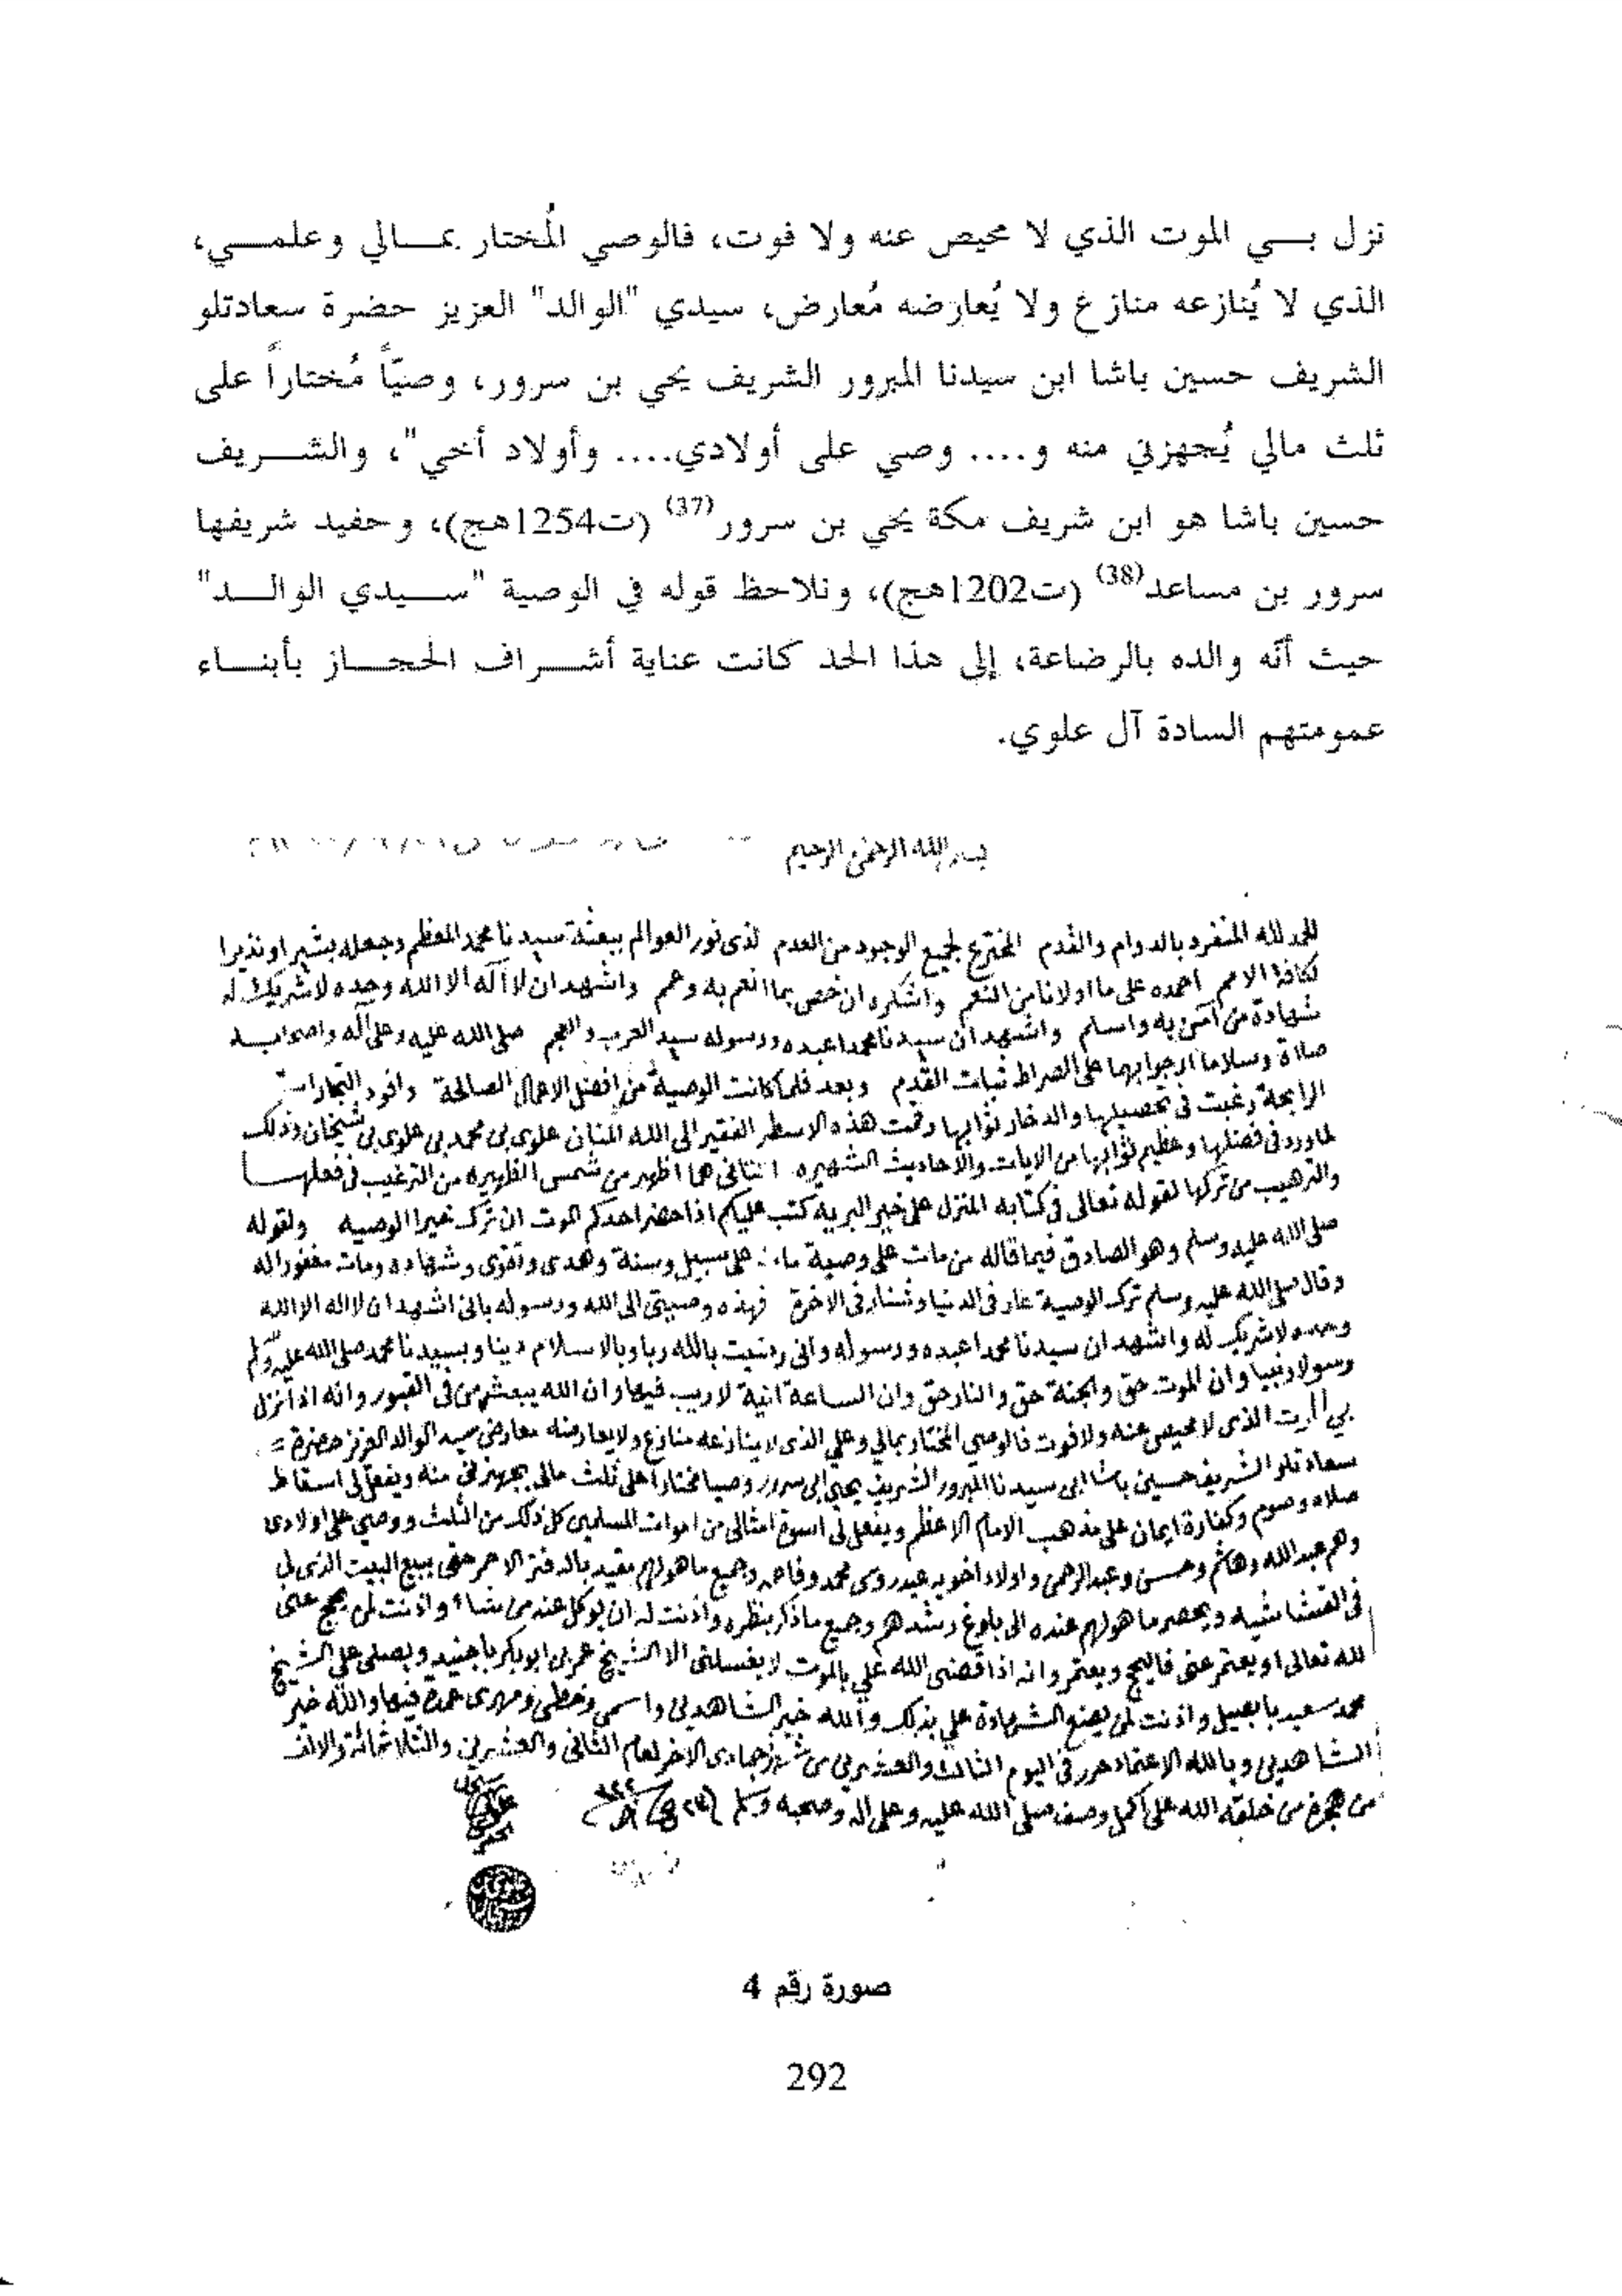 نزل بي الموت الذي لا محيص عنه ولا فوت، فالوصي المُختار بمالي وعلمي،
الذي لا يُنازعه منازغ ولا يُعارضه مُعارض، سيدي "الوالد" العزيز حضرة سعادتلو
الشريف حسين باشا ابن سيدنا المبرور الشريف يحي بن سرور، وصيّاً مُختاراً على
ثلث مالي يُجهزني منه و.... وصي على أولادي.... وأولاد أخي"، والشريف
حسين باشا هو ابن شريف مكة يحي بن سرور(37) (ت1254هج)، وحفيد شريفها
سرور بن مساعد(38) (ت1202هج)، ونلاحظ قوله في الوصية "سيدي الوالد"
حيث أنّه والده بالرضاعة، إلى هذا الحد كانت عناية أشراف الحجاز بأبناء
عمومتهم السادة آل علوي.
بسم الله الرحمن الرحيم
الحمد لله المنفرد بالدوام والقدم المخترع لجميع الوجود من العدم لذى نور العوالم ببعثة سيدنا محمد المعظم وجعله بشيرا ونذيرا
لكافة الامم احمده على ما اولانا من النعم واشكره ان خص بما انعم به وعم واشهد ان لا اله الا الله وحده لا شريك له
شهادة من آمن به واسلم واشهد ان سيدنا محمدا عبده ورسوله سيد العرب والعجم صلى الله عليه وعلى آله واصحابه
صلاة وسلاما ارجوا بها على الصراط ثبات القدم وبعد فلما كانت الوصية من افضل الاعمال الصالحة وافود التجارات
الرابحة رغبت في تحصيلها والدخار ثوابها رقمت هذه الاسطر الفقير الى الله المنان علوي بن محمد بن علوي بن شيخان وذلك
لما ورد في فضلها وعظيم ثوابها من الايات والأحاديث الشهيره التى هما اظهر من شمس الظهيره من الترغيب في فعلها
والترهيب من تركها لقوله تعالى في كتابه المنزل على خير البريه كتب عليكم اذا حضر احدكم الموت ان ترك خيرا الوصيه ولقوله
صلى الله عليه وسلم وهو الصادق فيما قاله من مات على وصية مات على سبيل وسنة وهدى وتقوى وشهاده ومات مغفورا له
وقال صلى الله عليه وسلم ترك الوصية عار في الدنيا وشنار في الاخرة فهذه وصيتي الى الله ورسوله بانى اشهد ان لا اله الا الله
وحده لا شريك له واشهد ان سيدنا محمدا عبده ورسوله وانى رضيت بالله ربا وبالاسلام دينا وبسيدنا محمد صلى الله عليه وسلم
رسولا ونبيا وان الموت حق والجنة حق والنار حق وان الساعة اتية لا ريب فيها وان الله يبعث من في القبور وانه اذا نزل
بي الموت الذى لا محيص عنه ولا فوت فالوصي المختار بمالي وعلي الذى لا ينازعه منازع ولا يعارضه معارض سيد الوالد العزيز حضرة =
سعادتلو الشريف حسين باشا ابن سيدنا المبرور الشريف يحي ابن سرور وصيا مختارا على ثلث مالى يجهزنى منه ويفعل لى اسقاط
صلاه وصوم وكفارة ايمان على مذهب الامام الاعظم ويفعل لى اسوة امثالى من اموات المسلمين كل ذلك من الثلث ووصي على اولادى
وهم عبدالله وهاشم وحسن وعبدالرحمن واولاد اخويه عيدروس محمد وجميع ما هو لهم مقيد بالدفتر الاحمر حتى ببيع البيت الذى لى
فى القشاشيه ويحصر ما هو لهم عنده الى بلوغ رشدهم وجميع ما ذكر بنظره واذنت له ان يوكل عنه من شاء واذنت لمن يحج عنى
لله تعالى او يعتمر عنى فاليحج ويعتمر وانه اذا قضى الله علي بالموت لا يغسلنى الا الشيخ عمر بن ابو بكر باجنيد ويصلى علي الشيخ
محمد سعيد بابصيل واذنت لمن يضع الشهادة علي بذلك والله خير الشاهدين واسمي وخطي ومهري عمدة فيها والله خير
الشاهدين وبالله الاعتماد حرر في اليوم الثالث والعشرين من شهر جمادى الاخر لعام الثانى والعشرين والثلاثمائة والالف
من هجرة من خلقه الله على اكمل وصف صلى الله عليه وعلى اله وصحبه وسلم
صورة رقم 4
292